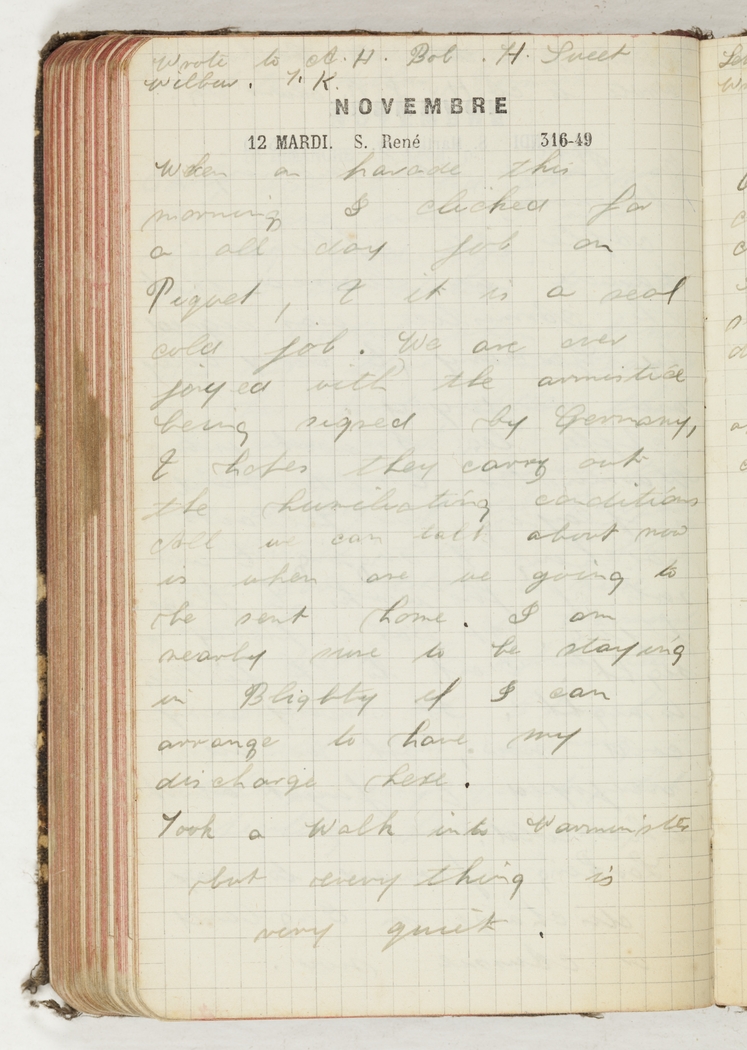 Wrote to A. H. Bob. H. Sweet
Wilbur. T. K.
NOVEMBRE
12 MARDI. S. René 316-49
When on parade this
morning I clicked for
a all day job on
Piquet, & it is a real
cold job. We are over
joyed with the armistice
being signed by Germany,
& hopes they carry out
the humiliating conditions
All we can talk about now
is when are we going to
be sent home. I am
nearly sure to be staying
in Blighty if I can
arrange to have my
discharge here.
Took a Walk into Warminster
but every thing is
very quiet.